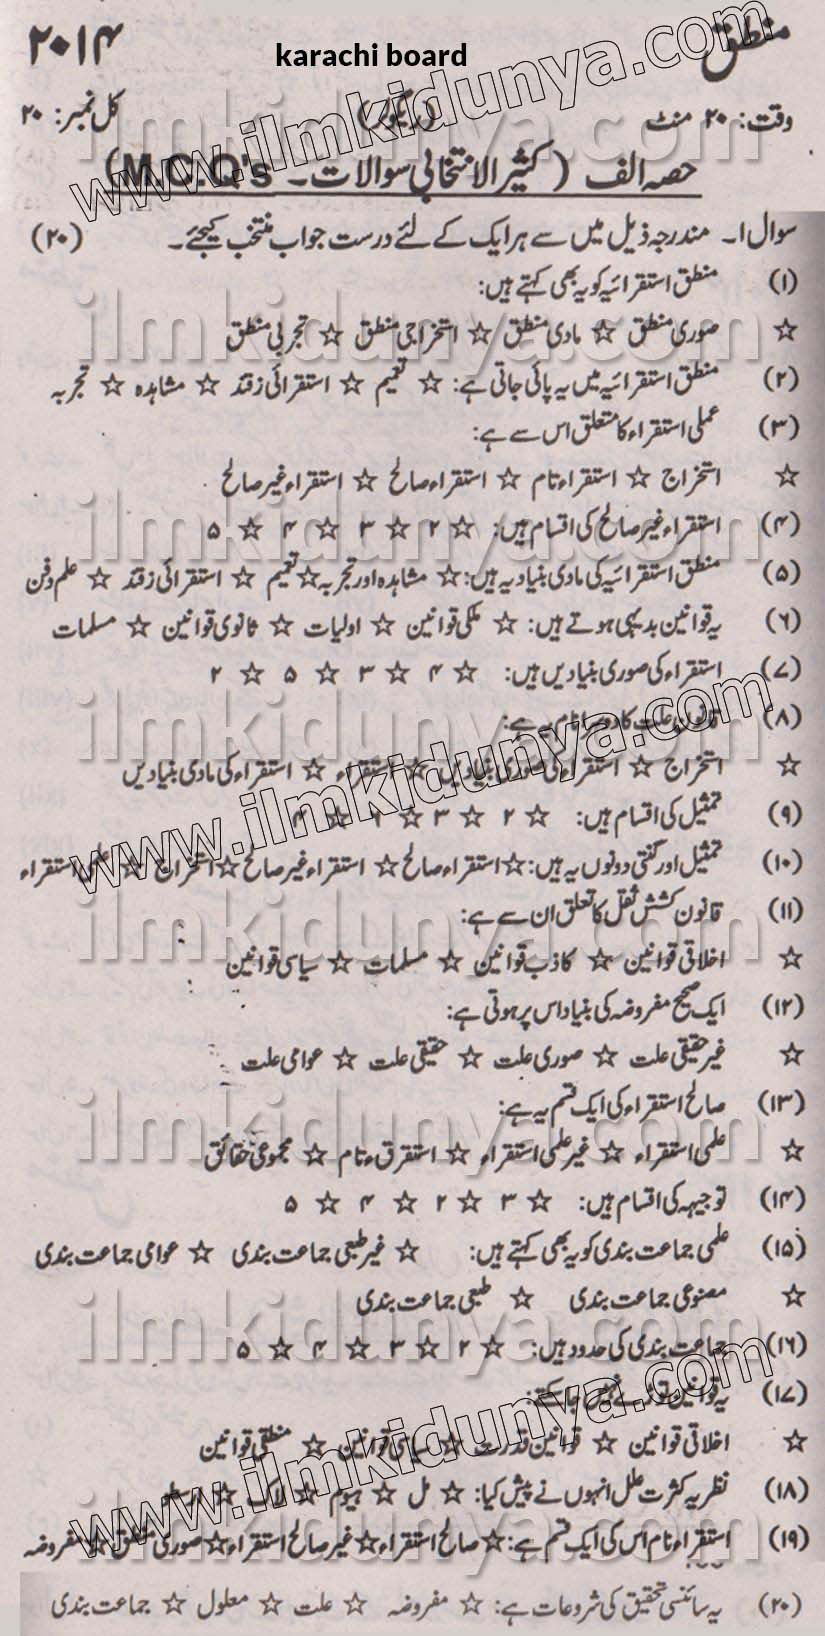 منطق karachi board ۲۰۱۴
وقت: ۲۰ منٹ (ریگولر) کل نمبر: ۲۰
حصہ الف (کثیر الانتخابی سوالات۔ M.C.Q's)
سوال ۱۔ مندرجہ ذیل میں سے ہر ایک کے لئے درست جواب منتخب کیجئے۔ (۲۰)
(۱) منطق استقرائیہ کو یہ بھی کہتے ہیں:
☆ صوری منطق ☆ مادی منطق ☆ استخراجی منطق ☆ تجربی منطق
(۲) منطق استقرائیہ میں یہ پائی جاتی ہے: ☆ تعمیم ☆ استقرائی زقند ☆ مشاہدہ ☆ تجربہ
(۳) عملی استقراء کا متعلق اس سے ہے:
☆ استخراج ☆ استقراء تام ☆ استقراء صالح ☆ استقراء غیر صالح
(۴) استقراء غیر صالح کی اقسام ہیں: ☆ ۲ ☆ ۳ ☆ ۴ ☆ ۵
(۵) منطق استقرائیہ کی مادی بنیاد یہ ہیں: ☆ مشاہدہ اور تجربہ ☆ تعمیم ☆ استقرائی زقند ☆ علم و فن
(۶) یہ قوانین بدیہی ہوتے ہیں: ☆ ملکی قوانین ☆ اولیات ☆ ثانوی قوانین ☆ مسلمات
(۷) استقراء کی صوری بنیادیں ہیں: ☆ ۴ ☆ ۳ ☆ ۵ ☆ ۲
(۸) قانون علت کا دوسرا نام یہ ہے:
☆ استخراج ☆ استقراء کی صوری بنیادیں ☆ استقراء ☆ استقراء کی مادی بنیادیں
(۹) تمثیل کی اقسام ہیں: ☆ ۲ ☆ ۳ ☆ ☆ ۴
(۱۰) تمثیل اور گنتی دونوں یہ ہیں: ☆ استقراء صالح ☆ استقراء غیر صالح ☆ استخراج ☆ علمی استقراء
(۱۱) قانون کشش ثقل کا تعلق ان سے ہے:
☆ اخلاقی قوانین ☆ کاذب قوانین ☆ مسلمات ☆ سیاسی قوانین
(۱۲) ایک صحیح مفروضہ کی بنیاد اس پر ہوتی ہے:
☆ غیر حقیقی علت ☆ صوری علت ☆ حقیقی علت ☆ عوامی علت
(۱۳) صالح استقراء کی ایک قسم یہ ہے:
☆ علمی استقراء ☆ غیر علمی استقراء ☆ استقرق ء تام ☆ مجموعی حقائق
(۱۴) توجیہہ کی اقسام ہیں: ☆ ۳ ☆ ۲ ☆ ۴ ☆ ۵
(۱۵) علمی جماعت بندی کو یہ بھی کہتے ہیں: ☆ غیر طبعی جماعت بندی ☆ عوامی جماعت بندی
☆ مصنوعی جماعت بندی ☆ طبعی جماعت بندی
(۱۶) جماعت بندی کی حدود ہیں: ☆ ۲ ☆ ۳ ☆ ۴ ☆ ۵
(۱۷) یہ قوانین توڑے نہیں جا سکتے:
☆ اخلاقی قوانین ☆ قوانین قدرت ☆ سیاسی قوانین ☆ منطقی قوانین
(۱۸) نظریہ کثرت علل انہوں نے پیش کیا: ☆ مل ☆ ہیوم ☆ لاک ☆ ارسطو
(۱۹) استقراء تام اس کی ایک قسم ہے: ☆ صالح استقراء ☆ غیر صالح استقراء ☆ صوری منطق ☆ مفروضہ
(۲۰) یہ سائنسی تحقیق کی شروعات ہے: ☆ مفروضہ ☆ علت ☆ معلول ☆ جماعت بندی